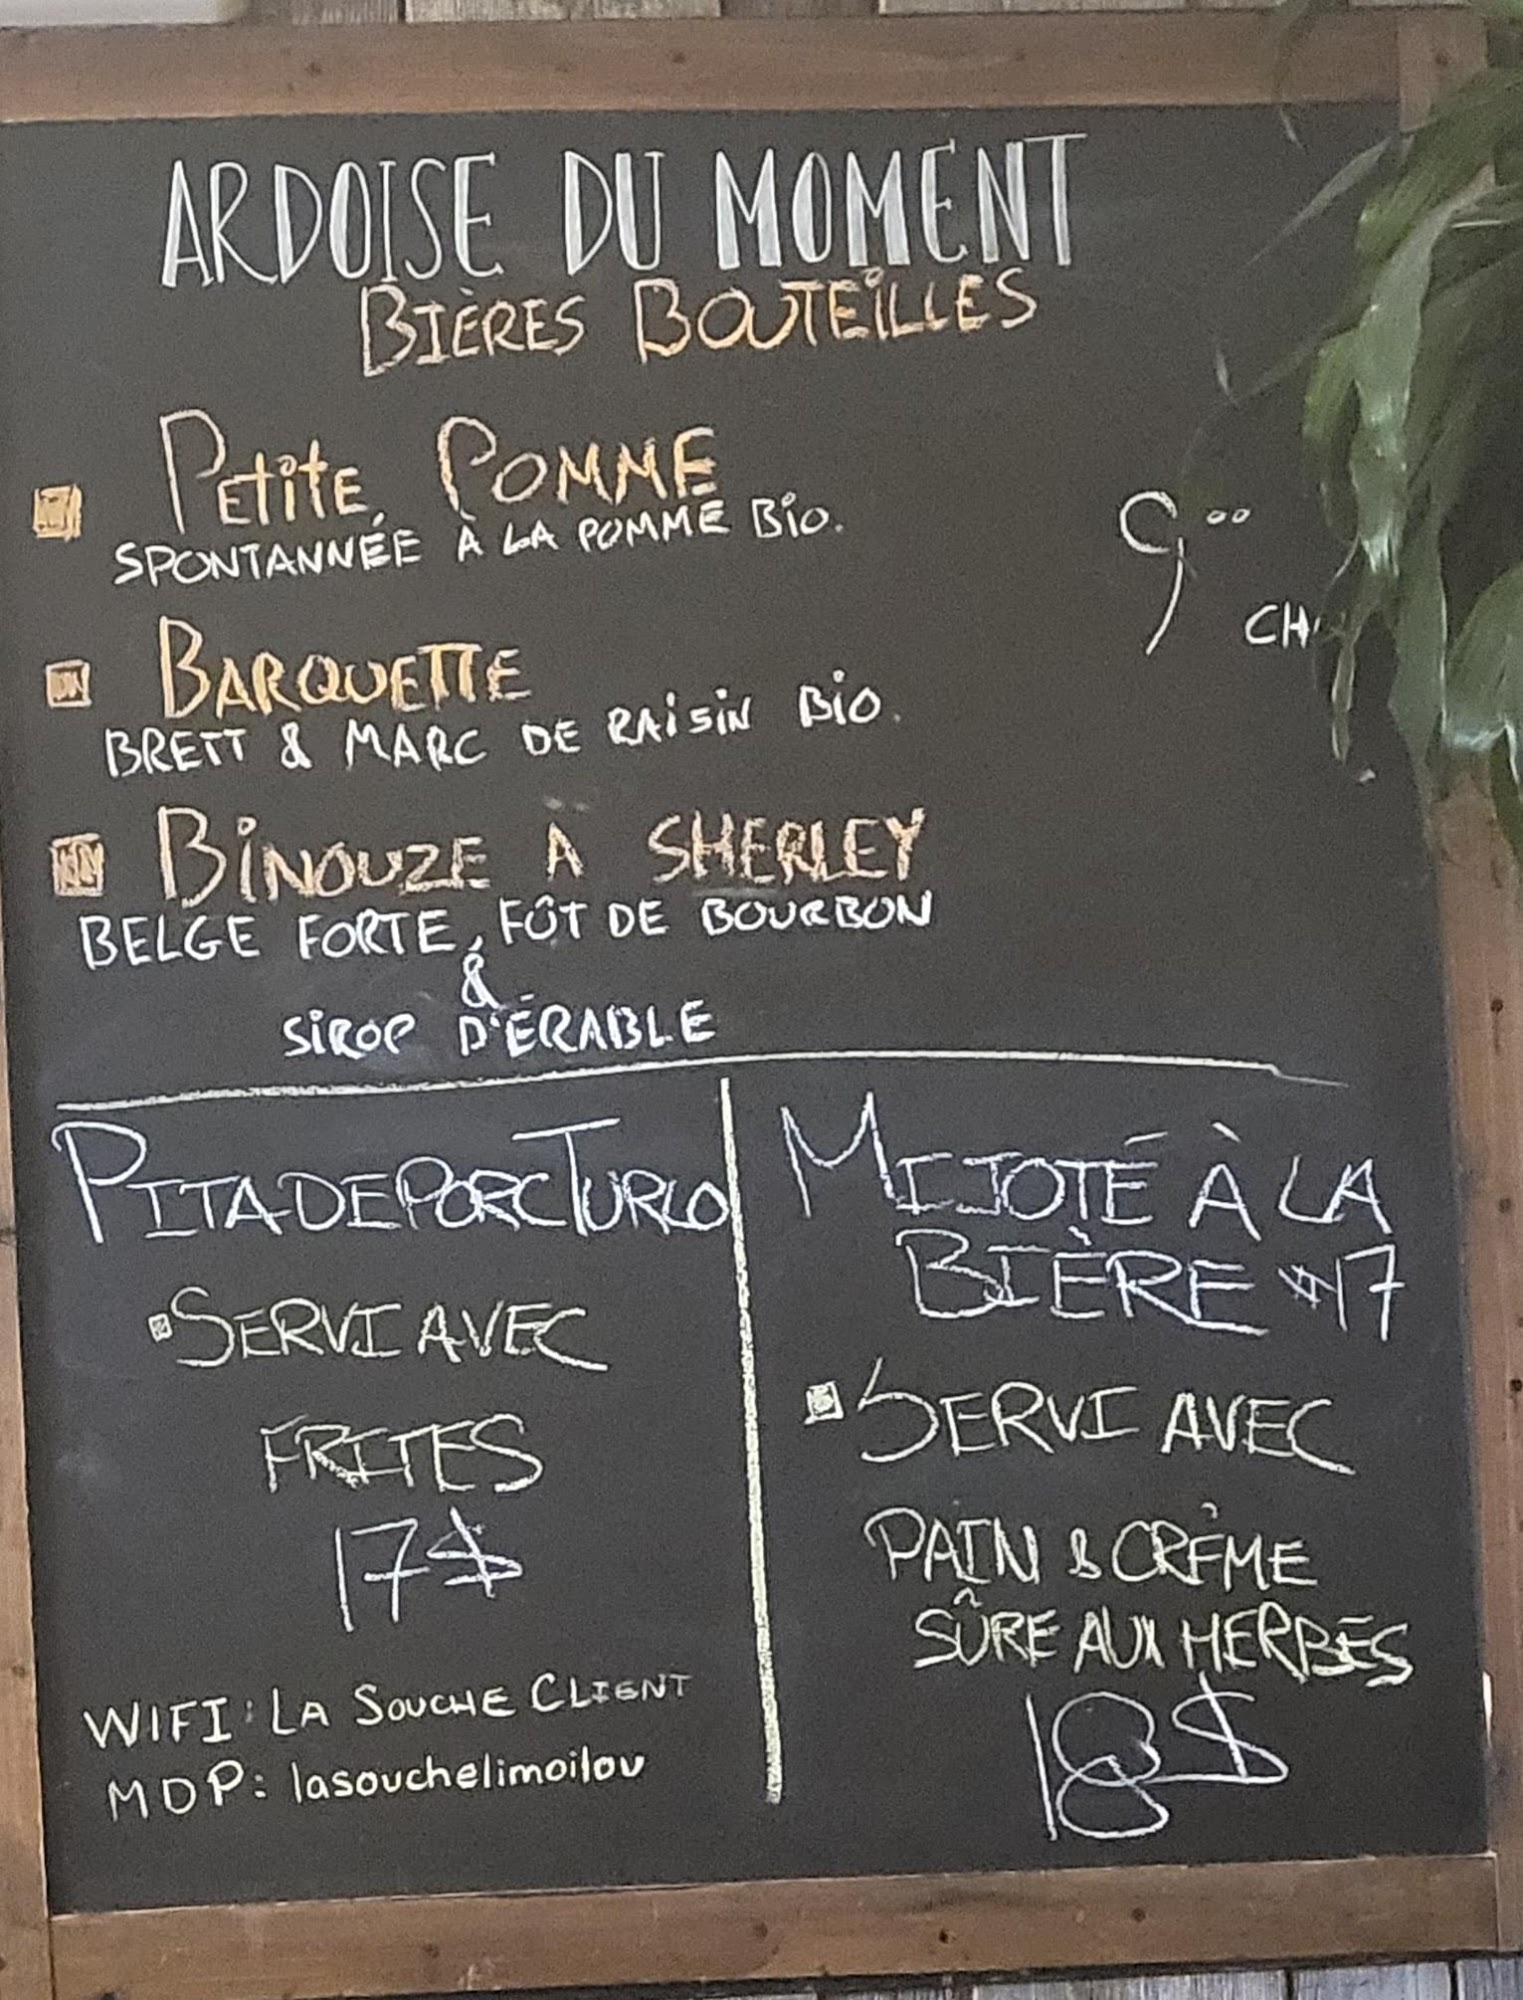 ARDOISE DU MOMENT
BIÈRES BOUTEILLES
PETITE POMME
SPONTANNÉE À LA POMME BIO.
9ºº
CH
BARQUETTE
BRETT & MARC DE RAISIN BIO.
BINOUZE À SHERLEY
BELGE FORTE, FÛT DE BOURBON
&
SIROP D'ÉRABLE
PITA DE PORC TURLO
SERVI AVEC
FRITES
17$
WIFI: LA SOUCHE CLIENT
MDP: lasouchelimoilou
MIJOTÉ À LA
BIÈRE #17
SERVI AVEC
PAIN & CRÈME
SÛRE AUX HERBES
18$